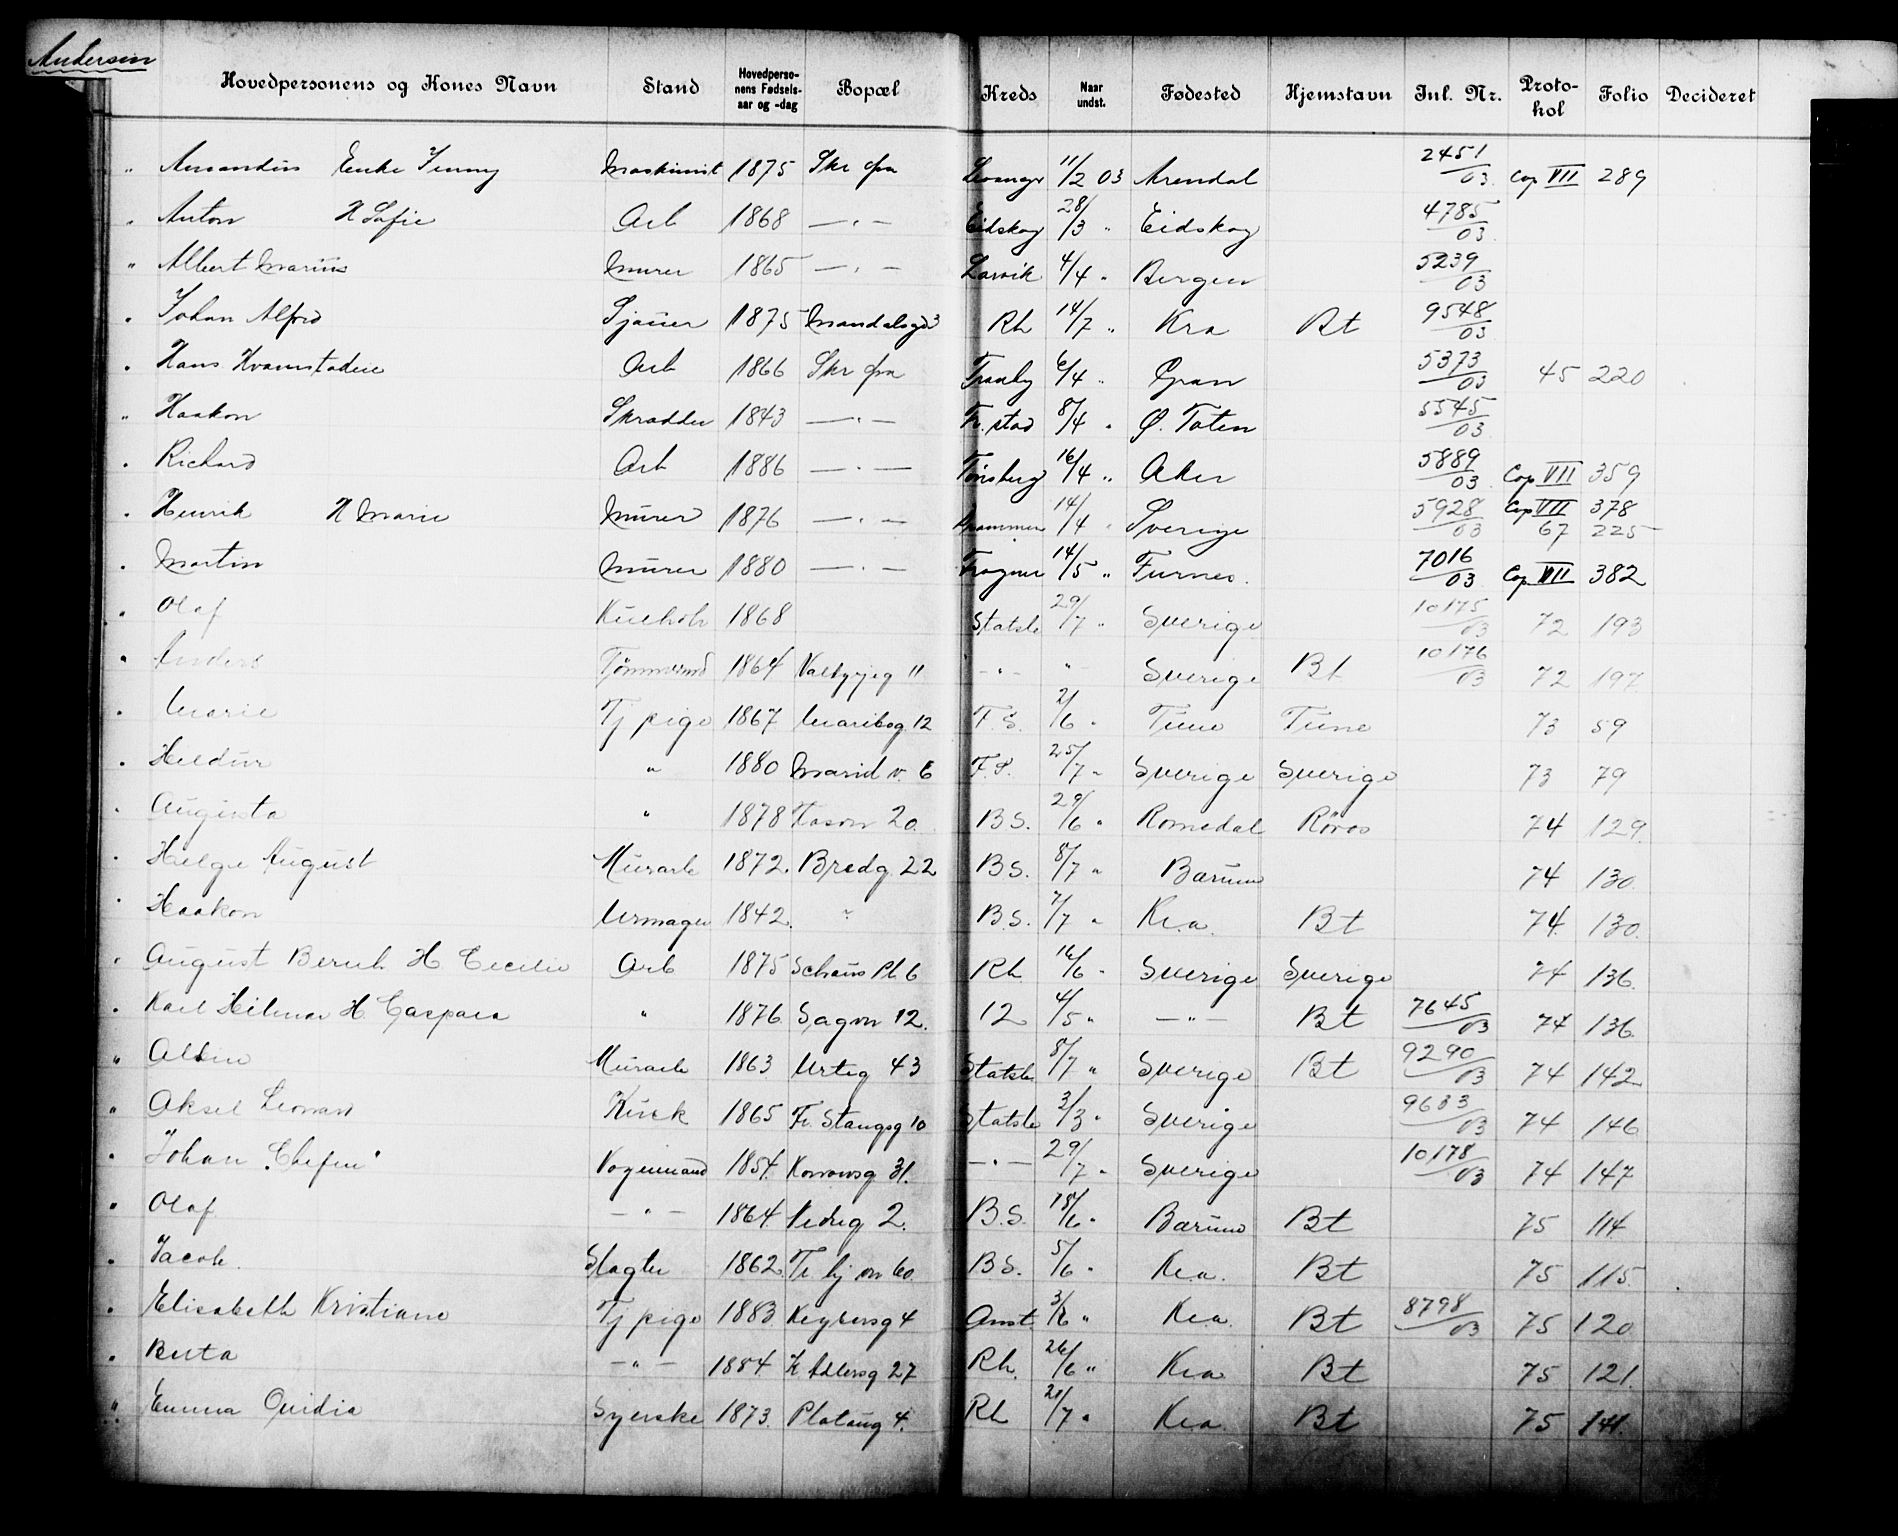 Andersen
Hovedpersonens og Kones Navn Stand Hovedpersonens Fødselsaar og -dag Bopæl Kreds Naar undst. Fødested Hjemstavn Inl. Nr. Protokol Folio Decideret
" Amandus Enke Jenny Maskinist 1875 Skr fra Levanger 11/2 03 Arendal 2451/03 Cop VII 289
" Anton H Sofie Arb 1868 — " — Eidskog 28/3 " Eidskog 4785/03
" Albert Marius Murer 1865 — " — Larvik 4/4 " Bergen 5239/03
" Johan Alfred Sjauer 1875 Mandalsgd 3 Rh 14/7 " Kra Bt 9548/03
" Hans Kvamstadeie Arb 1866 Skr fra Tranby 6/4 " Gran 5373/03 45 220
" Haakon Skrædder 1843 — " — Fr. stad 8/4 " Ø. Toten 5545/03
" Richard Arb 1886 — " — Tønsberg 16/4 " Aker 5889/03 Cop VII 359
" Henrik H Marie Murer 1876 — " — Drammen 14/4 " Sverige 5928/03 Cop VII 378
67 225
" Martin Murer 1880 — " — Frogner 14/5 " Furnes. 7016/03 Cop VII 382
" Olaf 1868 Statsb 29/7 " Sverige 10175/03 72 193
" Anders Tømmermd 1864 11 - " - " Sverige Bt 10176/03 72 197
" Marie Tj pige 1867. Maribog. 12 F. S. 2/6 " Tune Tune 73 59
" Hildur " 1880 Marid v. 6 F. S. 25/7 " Sverige Sverige 73 79
" Augusta " 1878 20. B S. 29/6 " Romedal Røros 74 129.
" Helge August Murarb 1872. Bredg. 22 B S. 8/7 " Bærum 74 130.
" Haakon Urmager 1842. " B. S. 7/7 " Kra. Bt 74. 130.
" August Bernh H Cecilie Arb 1875 Schaus Pl. 6 Rh 16/6 " Sverige Sverige 74 136.
" Karl Hilmar H Caspara " 1876. Sagvn 12. 12 4/5 " — " — Bt 7645/03 74 136.
" Albin Murarb 1863 Urteg 43 Statsb 8/7 " Sverige Bt 9290/03 74 142
" Aksel Leonard Kusk 1865 Fr. Stangsg 10 Statsb 3/3 " Sverige 9633/03 74 146
" Johan "Chefen" Vognmand 1854. 31. — " — 29/7 " Sverige 10178/03 74 147
" Olaf. — " — 1864 Vedng 2. B. S. 18/6 " Bærum Bt 75 114
" Jacob. Slagter 1862. Tr. hj. vn 60. B S. 5/6 " Kra. Bt 75 115.
" Elisabeth Kristiane Tj pige 1883. Keysersg 4 Anst. 3/6 " Kra. Bt 8798/03 75 120
" Berta — " — 1884. K Adlersg 27 Rh. 26/6 " Kra Bt 75 121.
" Emma Ovidia Syerske 1873. Platoug 4. Rh 21/7 " Kra Bt 75 141.